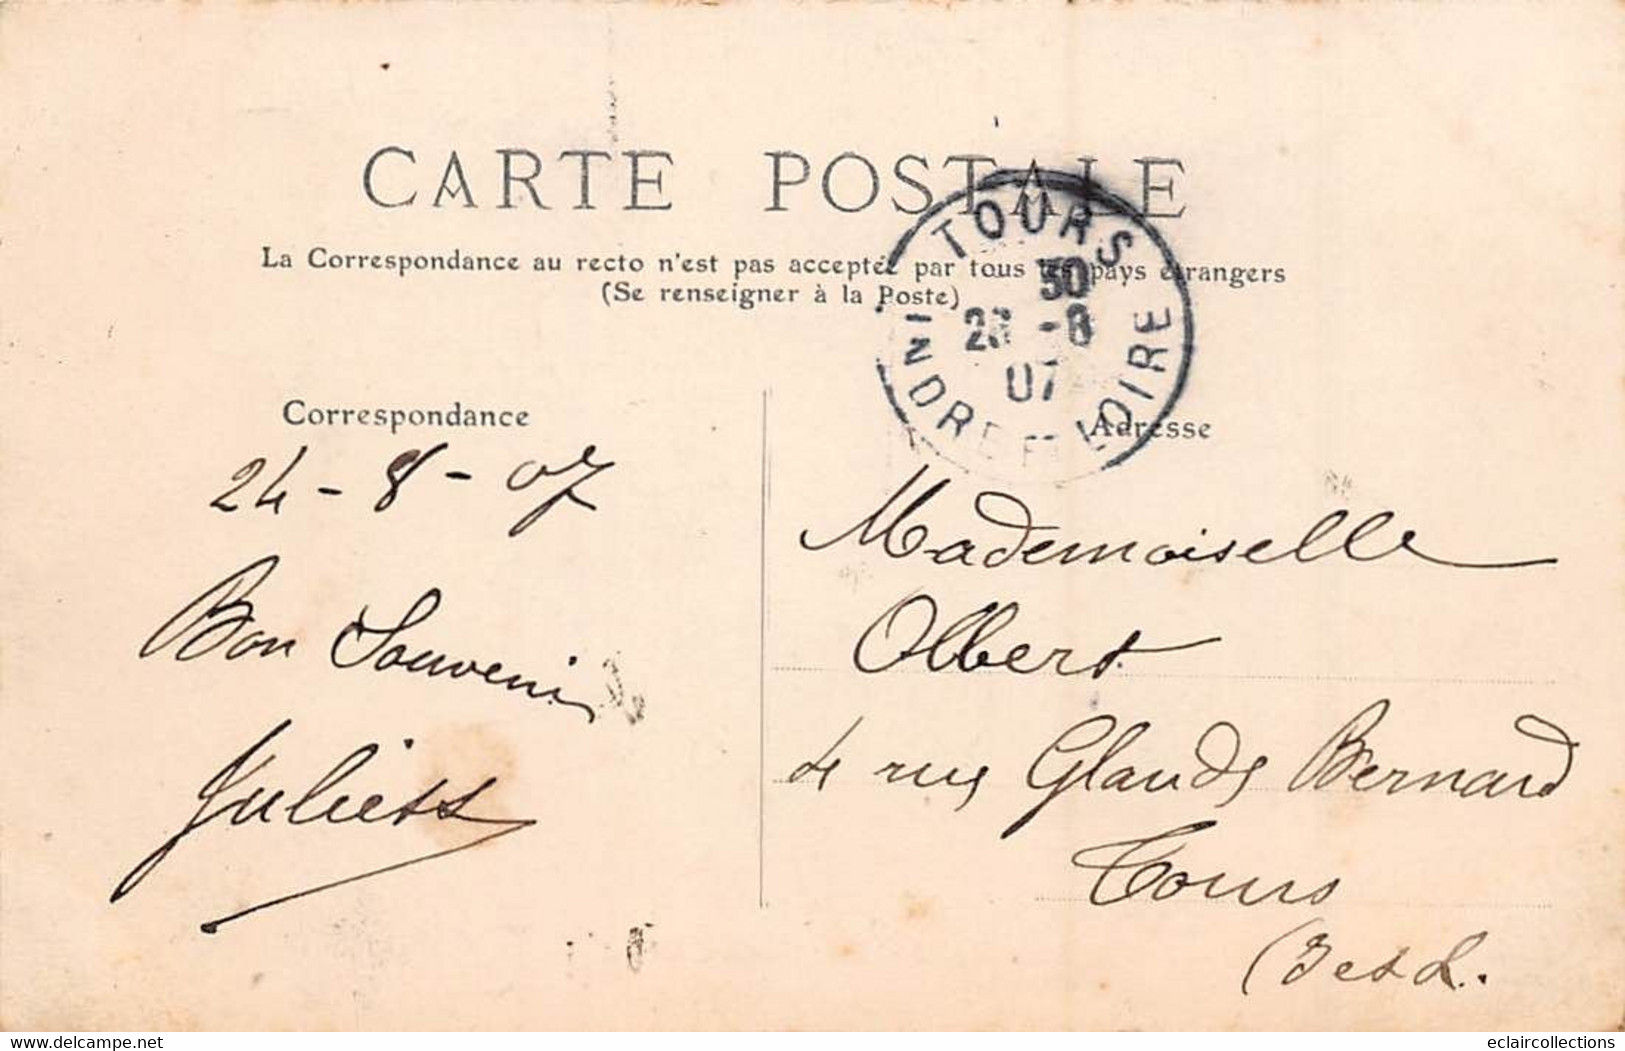 CARTE POSTALE
La Correspondance au recto n'est pas acceptée par tous les pays étrangers
(Se renseigner à la Poste)
TOURS
30
-8
07
INDRE ET LOIRE
Correspondance
24-8-07
Bon Souvenir
Adresse
Mademoiselle
Olbert
4 rue Claude Bernard
Tours
(I et L.
www.delcampe.net
eclaircollections